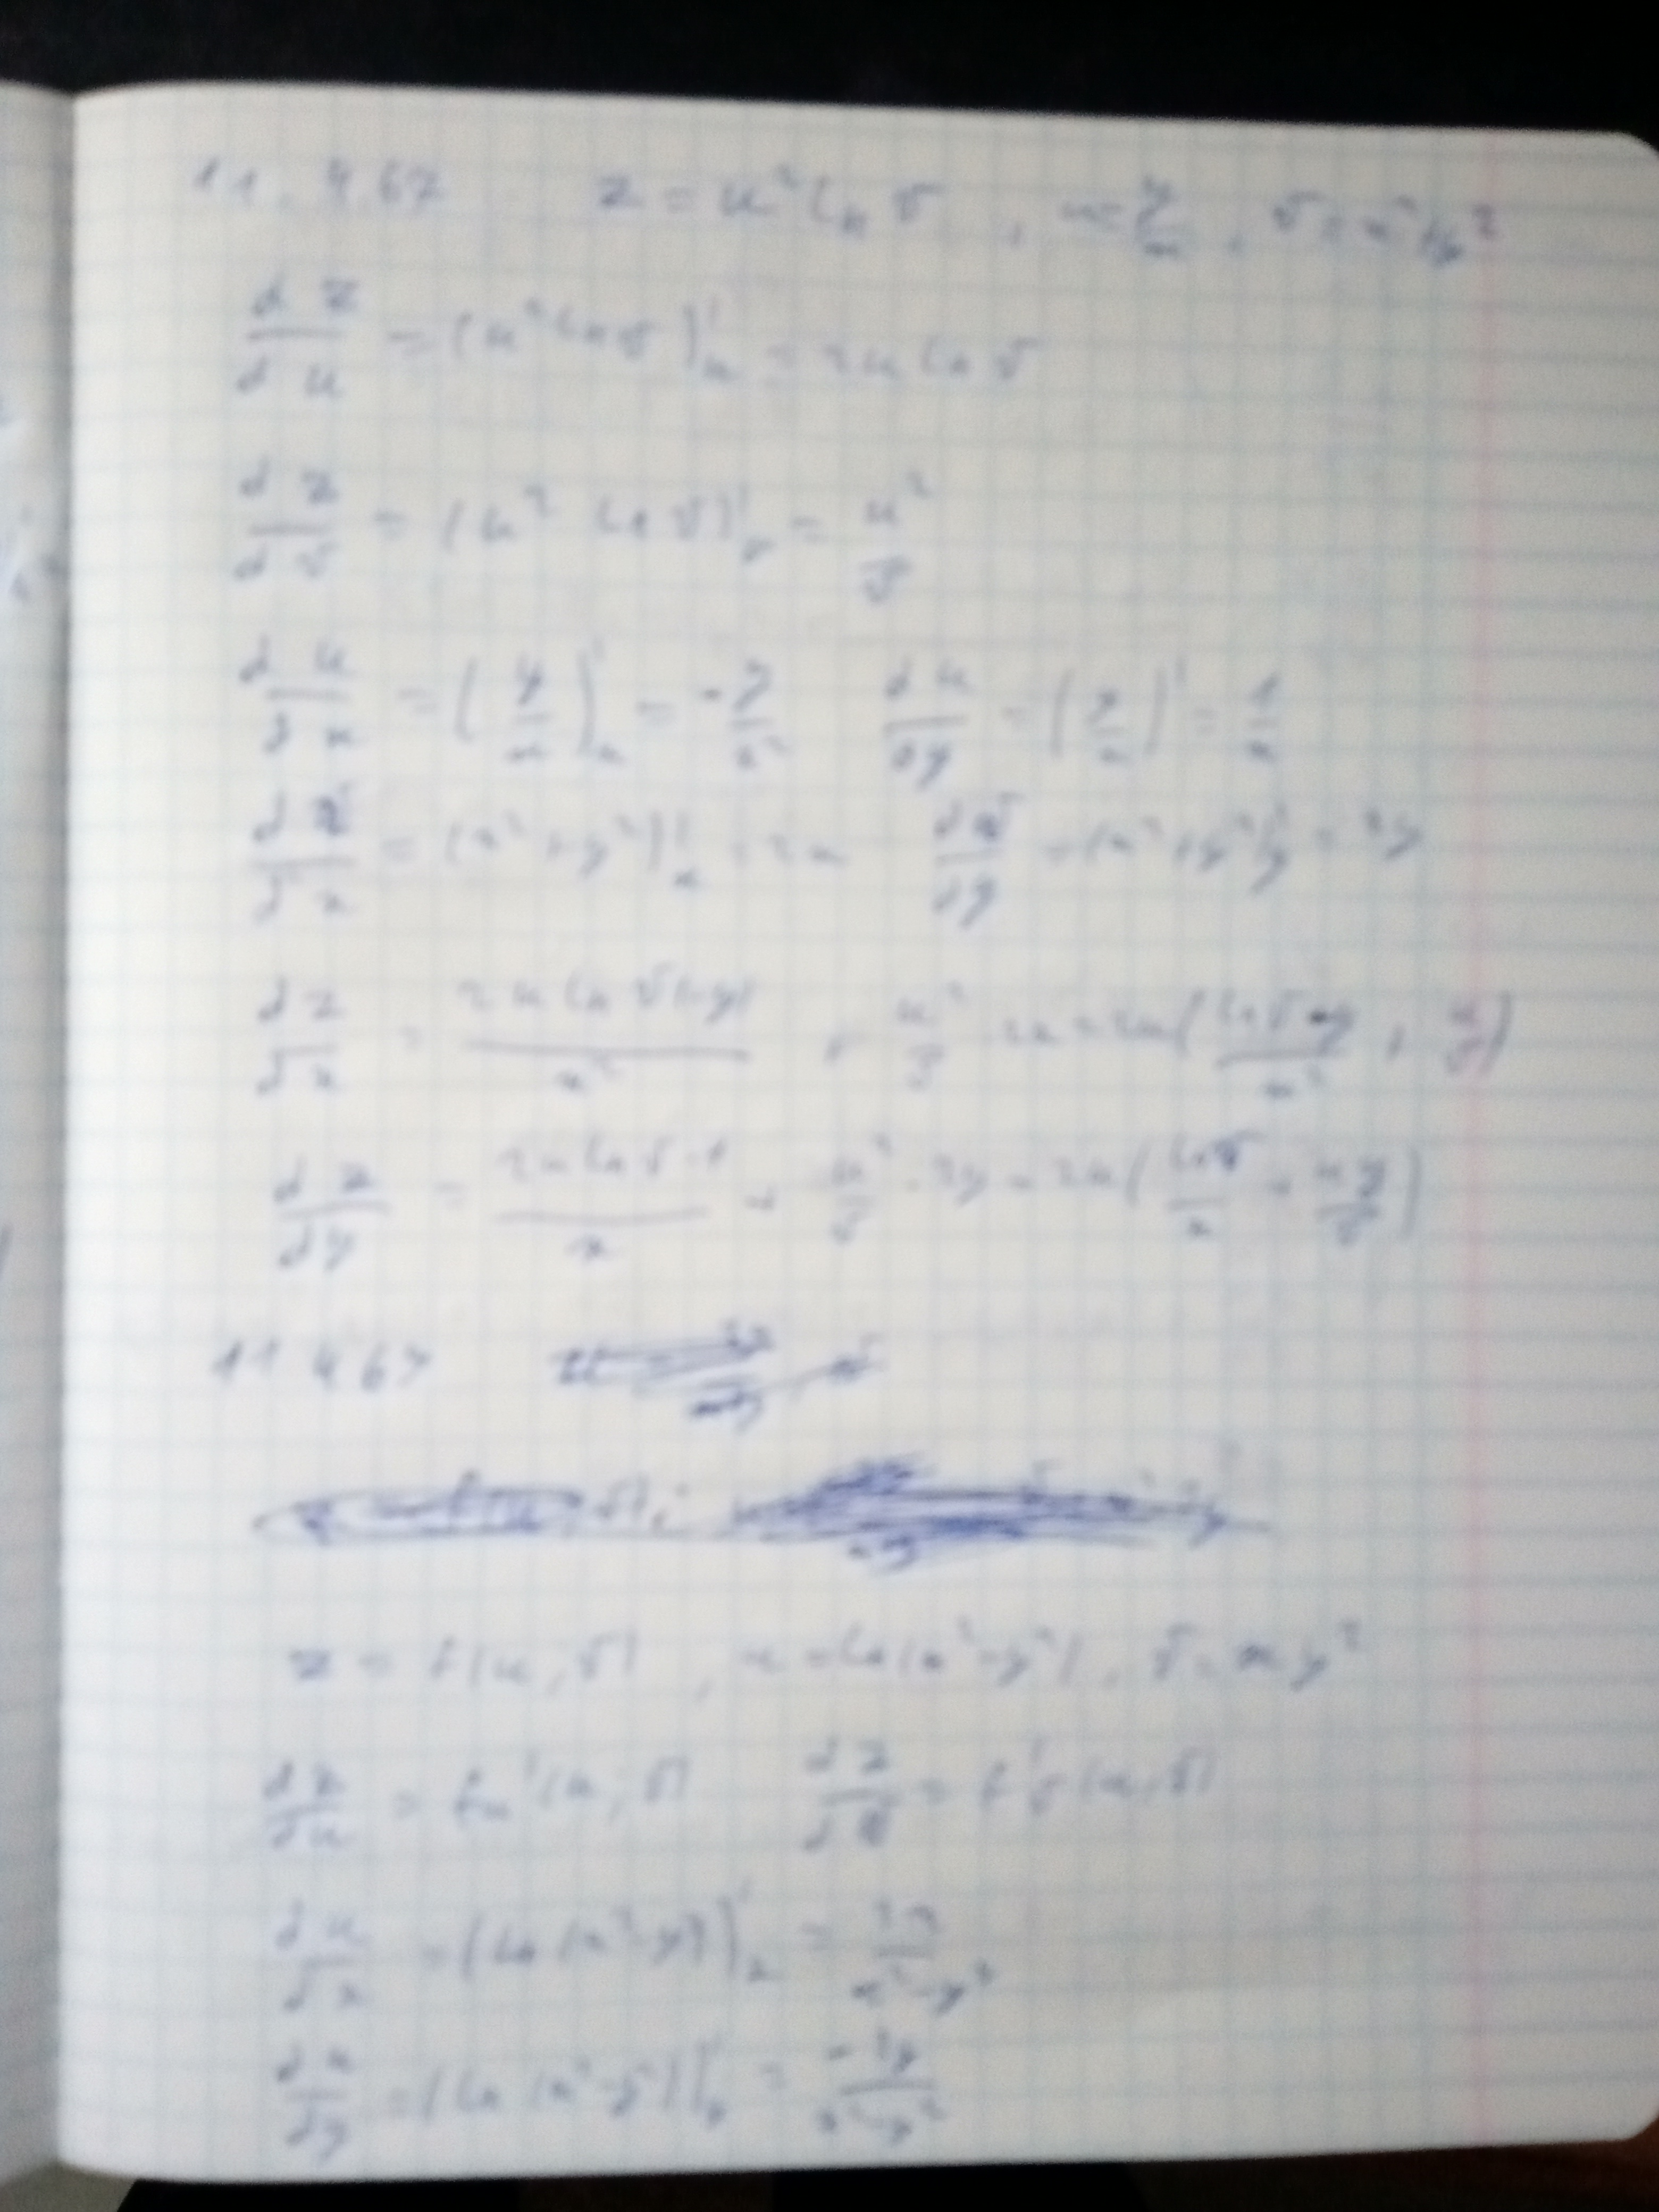 11.467 z = u² ln v , u = y/x , v = x² + y²
dz/du = (u² ln v)'u = 2u ln v
dz/dv = (u² ln v)'v = u²/v
du/dx = (y/x)'x = -y/x² du/dy = (y/x)' = 1/x
dv/dx = (x² + y²)'x = 2x dv/dy = (x² + y²)'y = 2y
dz/dx = 2u ln v(-y)/x² + u²/v 2x = 2u(
dz/dy = 2u ln v · 1/x + u²/v · 2y = 2u(ln v/x + uy/v)
11.467
z = f(u, v) , u = ln(x² - y²) , v = xy²
dz/du = fu'(u, v) dz/dv = f'v(u, v)
du/dx = (ln(x² - y²))'x = 2x/x² - y²
du/dy = (ln(x² - y²))'y = -2y/x² - y²